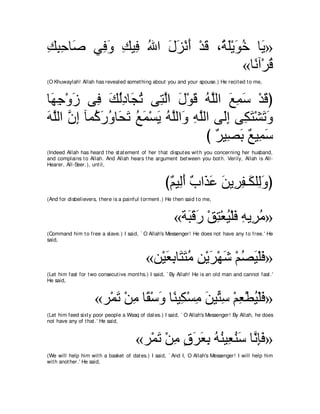 «يَا خُوَيْلَةُ، قَدْ أَنْزَلَ اللهُ فِيكِ وَفِي صَاحِبِكِ
قُرْآنًا»
(O Khuwaylah! Allah has revealed something about you and your spouse.) He recited to me,
(قَدْ سَمِعَ اللَّهُ قَوْلَ الَّتِى تُجَادِلُكَ فِى زَوْجِهَا
وَتَشْتَكِى إِلَى اللَّهِ وَاللَّهُ يَسْمَعُ تَحَاوُرَكُمآ إِنَّ اللَّهَ
سَمِيعٌ بَصِيرٌ )
(Indeed Allah has heard the statement of her that disputes with you concerning her husband,
and complains to Allah. And Allah hears the argument between you both. Verily, Allah is All-
Hearer, All-Seer.), until,
(وَلِلْكَـفِرِينَ عَذَابٌ أَلِيمٌ)
(And for disbelievers, there is a painful torment.) He then said to me,
«مُرِيهِ فَلْيُعْتِقْ رَقَبَة»
(Command him to free a slave.) I said, `O Allah's Messenger! He does not have any to free.' He
said,
«فَلْيَصُمْ شَهْرَيْنِ مُتَتَابِعَيْنِ»
(Let him fast for two consecutive months.) I said, `By Allah! He is an old man and cannot fast.'
He said,
«فَلْيُطْعِمْ سِتِّينَ مِسْكِينًا وَسْقًا مِنْ تَمْر»
(Let him feed sixty poor people a Wasq of dates.) I said, `O Allah's Messenger! By Allah, he does
not have any of that.' He said,
«فَإِنَّا سَنُعِينُهُ بِعَرَقٍ مِنْ تَمْر»
(We will help him with a basket of dates.) I said, `And I, O Allah's Messenger! I will help him
with another.' He said,